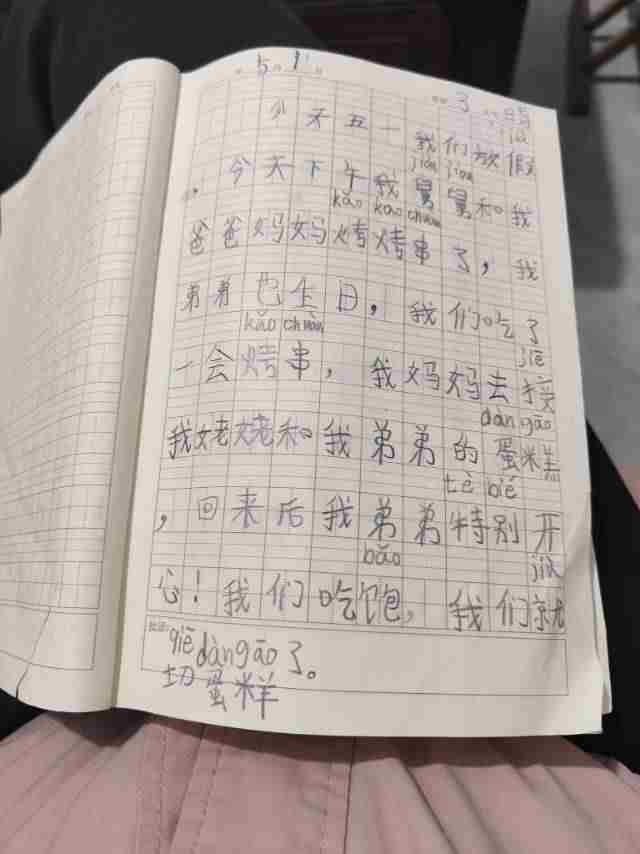 5 1
3 晴
jià
今天五一我们放假
jiù jiu
，今天下午我舅舅和我
kǎo kǎo chuàn
爸爸妈妈烤烤串了，我
弟弟也生日，我们吃了
kǎo chuàn
jiē
一会烤串，我妈妈去接
dàn gāo
我姥姥和我弟弟的蛋糕
tè bié
，回来后我弟弟特别开
bǎo jiù
心！我们吃饱，我们就
qiē dàn gāo了。
切蛋样